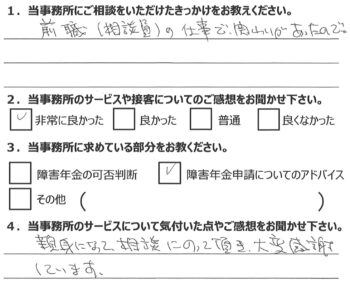 1. 当事務所にご相談をいただけたきっかけをお教えください。
前職(相談員)の仕事で、関わりがあったので。
2. 当事務所のサービスや接客についてのご感想をお聞かせ下さい。
☑ 非常に良かった □ 良かった □ 普通 □ 良くなかった
3. 当事務所に求めている部分をお教ください。
□ 障害年金の可否判断 ☑ 障害年金申請についてのアドバイス
□ その他 ( )
4. 当事務所のサービスについて気付いた点やご感想をお聞かせ下さい。
親身になって相談にのって頂き、大変感謝
しています。